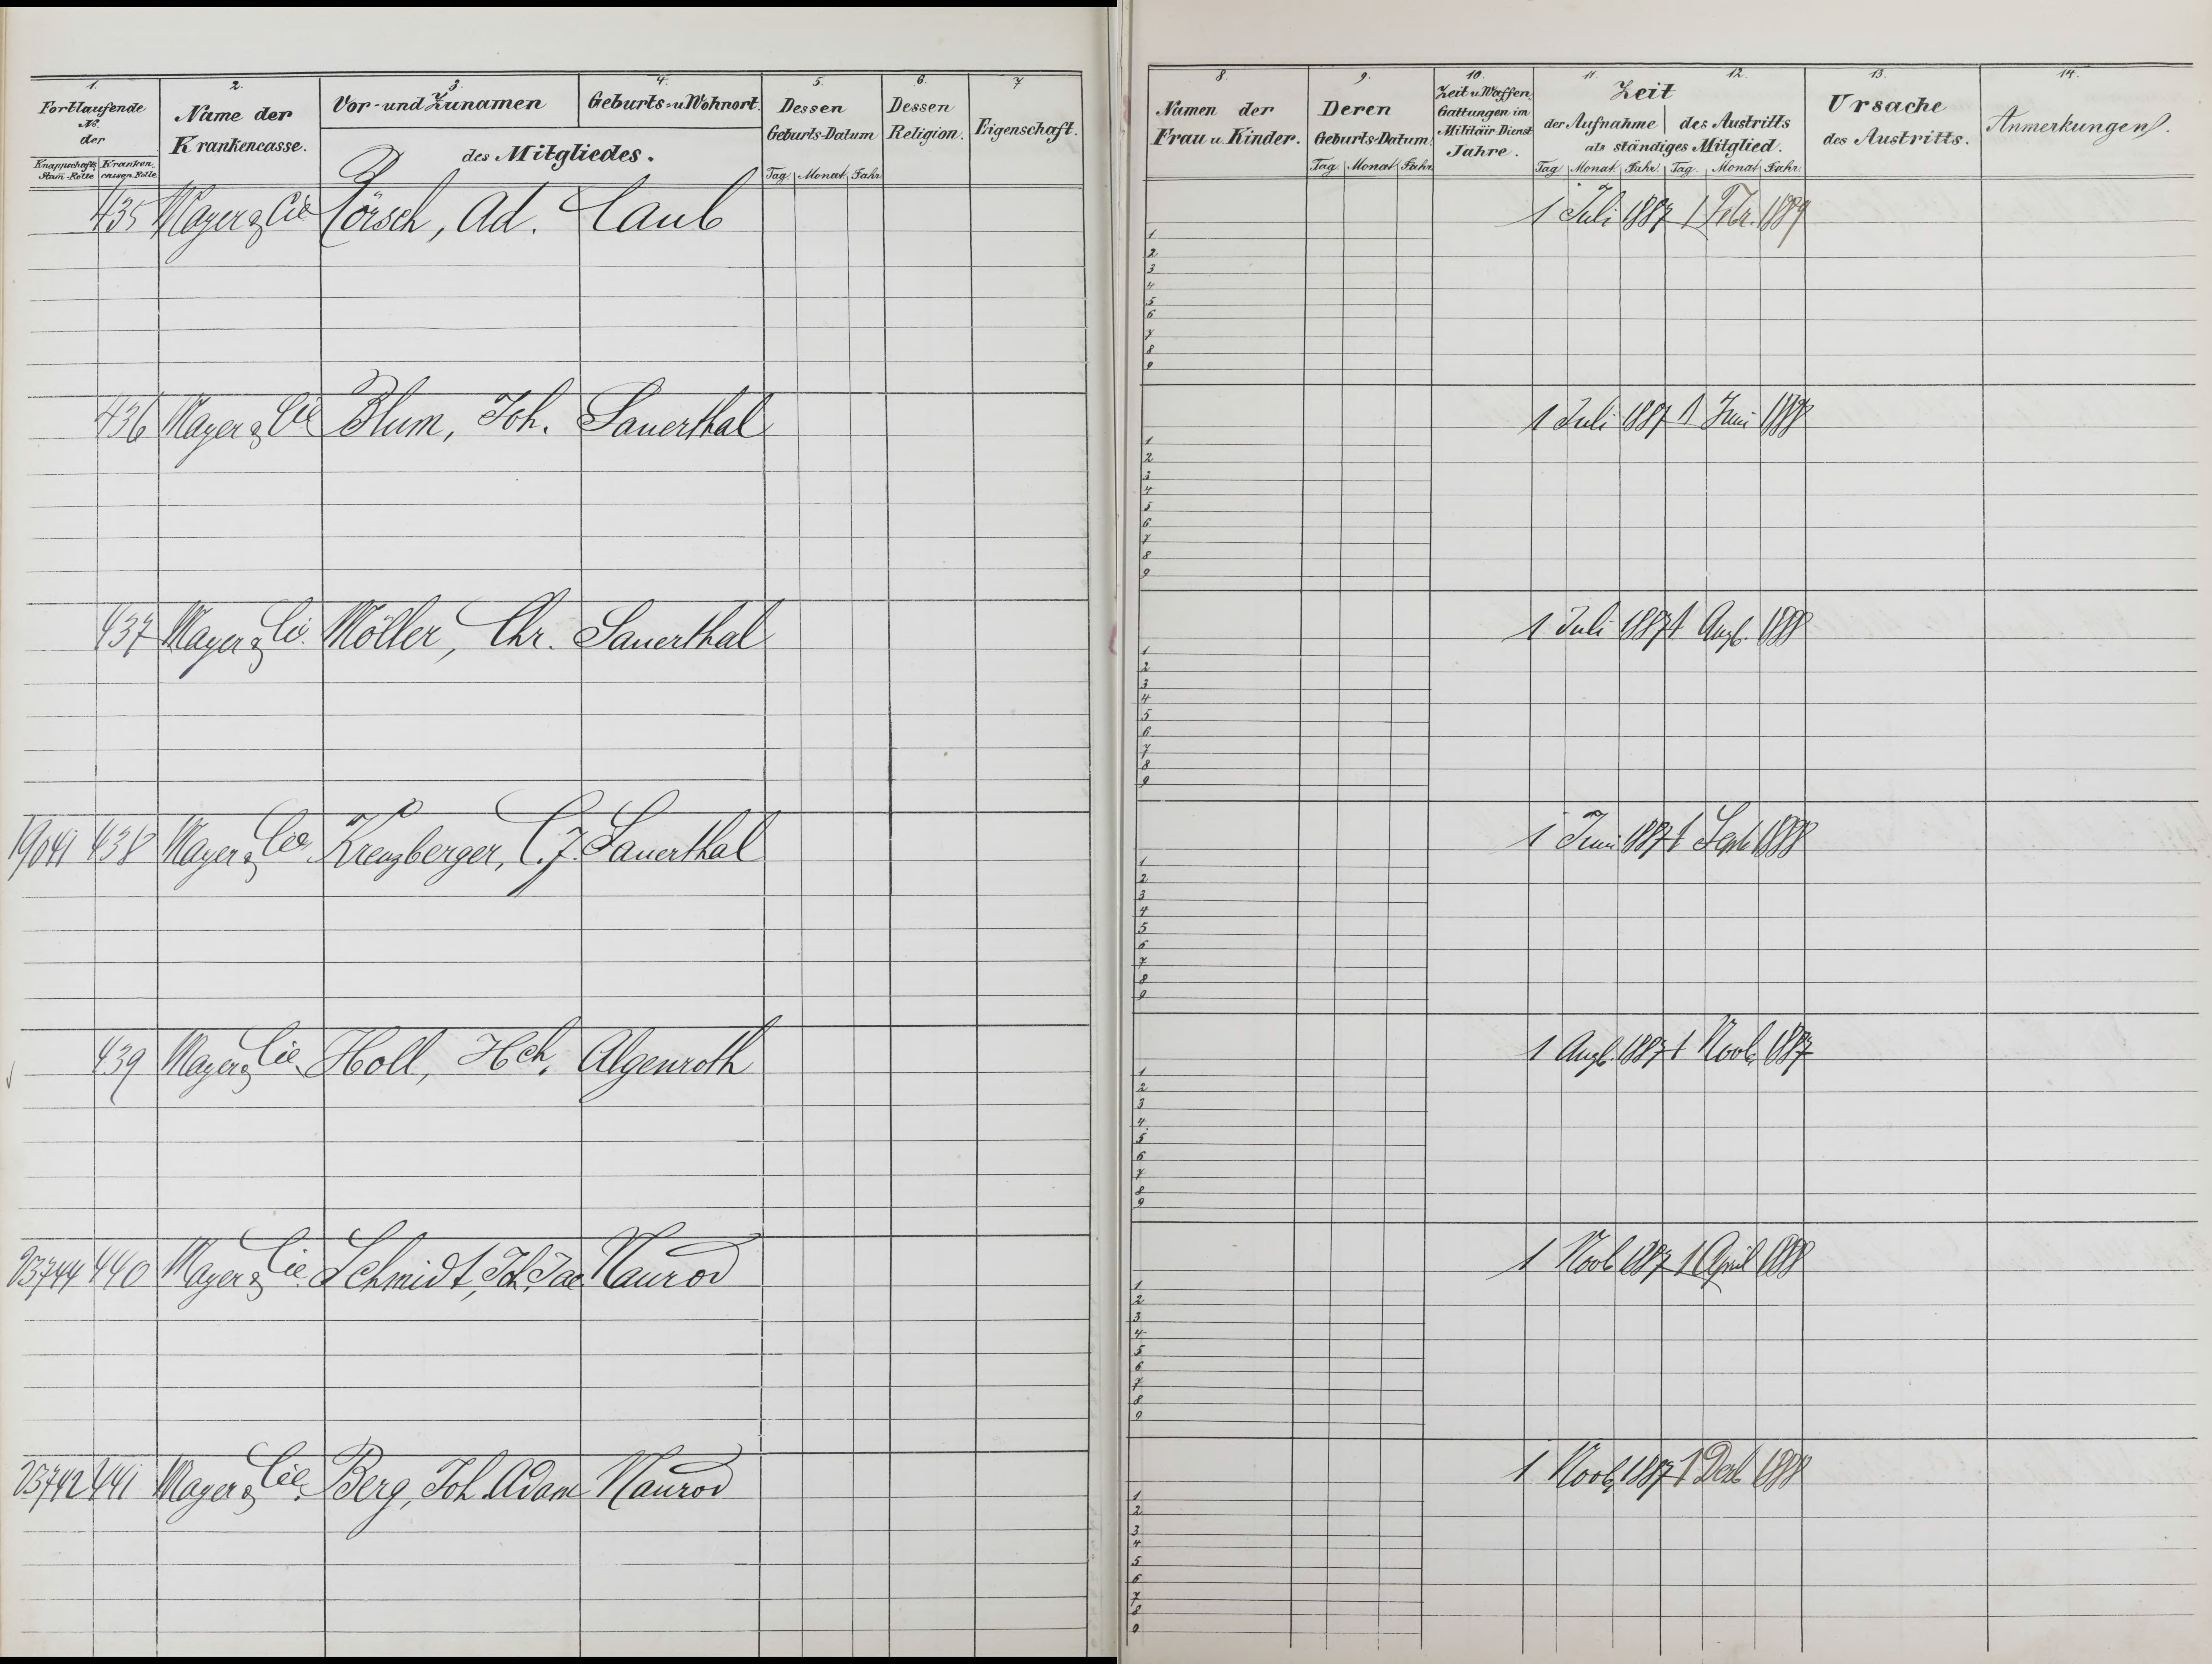 1. 2. 3. 4. 5. 6. 7
Fortlaufende No. der
Knappschafts Stam-Rolle Kranken cassen-Rolle
Name der Krankencasse.
Vor- und Zunamen Geburts- u Wohnort.
des Mitgliedes.
Dessen Geburts-Datum
Tag. Monat. Jahr
Dessen Religion.
Eigenschaft.
435 Mayer & Cie Lörsch, Ad. Caub
436 Mayer & Cie Blum, Joh. Sauerthal
437 Mayer & Cie. Möller, Chr. Sauerthal
19041 438 Mayer & Cie. Kreuzberger, C. J. Sauerthal
439 Mayer & Cie. Holl, Hch. Algenroth
23744 440 Mayer & Cie. Schmidt, Joh. Jac. Naurod
23742 441 Mayer & Cie. Berg, Joh. Adam Naurod
8. 9. 10. 11. 12. 13. 14.
Namen der Frau u. Kinder.
Deren Geburts-Datum.
Tag. Monat Jahr.
Zeit u. Waffen Gattungen im Militair-Dienst Jahre.
Zeit
der Aufnahme des Austritts
als ständiges Mitglied.
Tag Monat. Jahr. Tag. Monat Jahr.
Ursache des Austritts.
Anmerkungen.
1 Juli 1887 1 Febr. 1889
1
2
3
4
5
6
7
8
9
1 Juli 1887 1 Juni 1888
1
2
3
4
5
6
7
8
9
1 Juli 1887 1 Augb. 1888
1
2
3
4
5
6
7
8
9
1 Juni 1887 1 Septb 1888
1
2
3
4
5
6
7
8
9
1 Augb. 1887 1 Novb. 1887
1
2
3
4
5
6
7
8
9
1 Novb 1887 1 April 1888
1
2
3
4
5
6
7
8
9
1 Novb. 1887 1 Dezb 1888
1
2
3
4
5
6
7
8
9